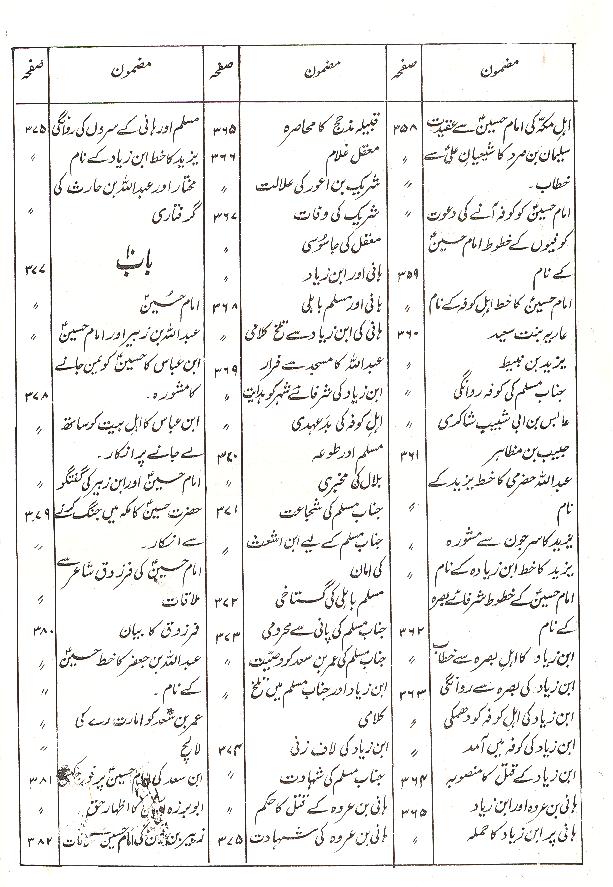 مضمون صفحہ
اہل مکہ کی امام حسینؑ سے عقیدت ۳۵۸
سلیمان بن صرد کا شیعیان علیؑ سے
خطاب۔ 〃
امام حسینؑ کو کوفہ آنے کی دعوت 〃
کوفیوں کے خطوط امام حسینؑ
کے نام ۳۵۹
امام حسینؑ کا خط اہل کوفہ کے نام 〃
ماریہ بنت سعید ۳۶۰
یزید بن نبیط 〃
جناب مسلم کی کوفہ روانگی 〃
عابس بن ابی شبیب شاکری 〃
حبیب بن مظاہر ۳۶۱
عبداللہ حضرمی کا خط یزید کے
نام 〃
یزید کا سرجون سے مشورہ 〃
یزید کا خط ابن زیادہ کے نام 〃
امام حسینؑ کے خطوط شرفائے بصرہ
کے نام ۳۶۲
ابن زیاد کا اہل بصرہ سے خطاب 〃
ابن زیاد کی بصرہ سے روانگی ۳۶۳
ابن زیاد کی اہل کوفہ کو دھمکی 〃
ابن زیاد کی کوفہ میں آمد 〃
ابن زیاد کے قتل کا منصوبہ ۳۶۴
ہانی بن عروہ اور ابن زیاد ۳۶۵
ہانی پر ابن زیاد کا حملہ 〃
مضمون صفحہ
قبیلہ مذحج کا محاصرہ ۳۶۵
معقل غلام ۳۶۶
شریک بن اعور کی علالت 〃
شریک کی وفات ۳۶۷
معقل کی جاسوسی 〃
ہانی اور ابن زیاد 〃
ہانی اور مسلم باہلی ۳۶۸
ہانی کی ابن زیاد سے تلخ کلامی 〃
عبداللہ کا مسجد سے فرار ۳۶۹
ابن زیاد کی شرفائے شہر کو ہدایت 〃
اہل کوفہ کی بدعہدی 〃
مسلم اور طوعہ ۳۷۰
بلال کی مخبری 〃
جناب مسلم کی شجاعت ۳۷۱
جناب مسلم کے لیے ابن اشعث
کی امان 〃
مسلم باہلی کی گستاخی ۳۷۲
جناب مسلم کی پانی سے محرومی ۳۷۳
جناب مسلم کی عمر بن سعد کو وصیت 〃
ابن زیاد اور جناب مسلم میں تلخ
کلامی 〃
ابن زیاد کی لاف زنی ۳۷۴
جناب مسلم کی شہادت 〃
ہانی بن عروہ کے قتل کا حکم 〃
ہانی بن عروہ کی شہادت ۳۷۵
مضمون صفحہ
مسلم اور ہانی کے سروں کی روانگی ۳۷۵
یزید کا خط ابن زیاد کے نام 〃
مختار اور عبداللہ بن حارث کی
گرفتاری 〃
باب ۱۰ ۳۷۷
امام حسینؑ 〃
عبداللہ بن زبیر اور امام حسینؑ 〃
ابن عباس کا حسینؑ کو یمن جانے
کا مشورہ۔ ۳۷۸
ابن عباس کا اہل بیت کو ساتھ
لے جانے پر انکار۔ 〃
امام حسینؑ اور ابن زبیر کی گفتگو 〃
حضرت حسینؑ کا مکہ میں جنگ کرنے ۳۷۹
سے انکار۔ 〃
امام حسینؑ کی فرزدق شاعر سے
ملاقات 〃
فرزوق کا بیان ۳۸۰
عبداللہ بن جعفر کا خط حسینؑ
کے نام۔ 〃
عمر بن سعد کو امارت رے کی
لالچ 〃
ابن سعد کی امام حسینؑ پر فوج کشی ۳۸۱
ابو برزہ کا اظہار حق 〃
زہیر بن کی امام حسینؑ ۳۸۲